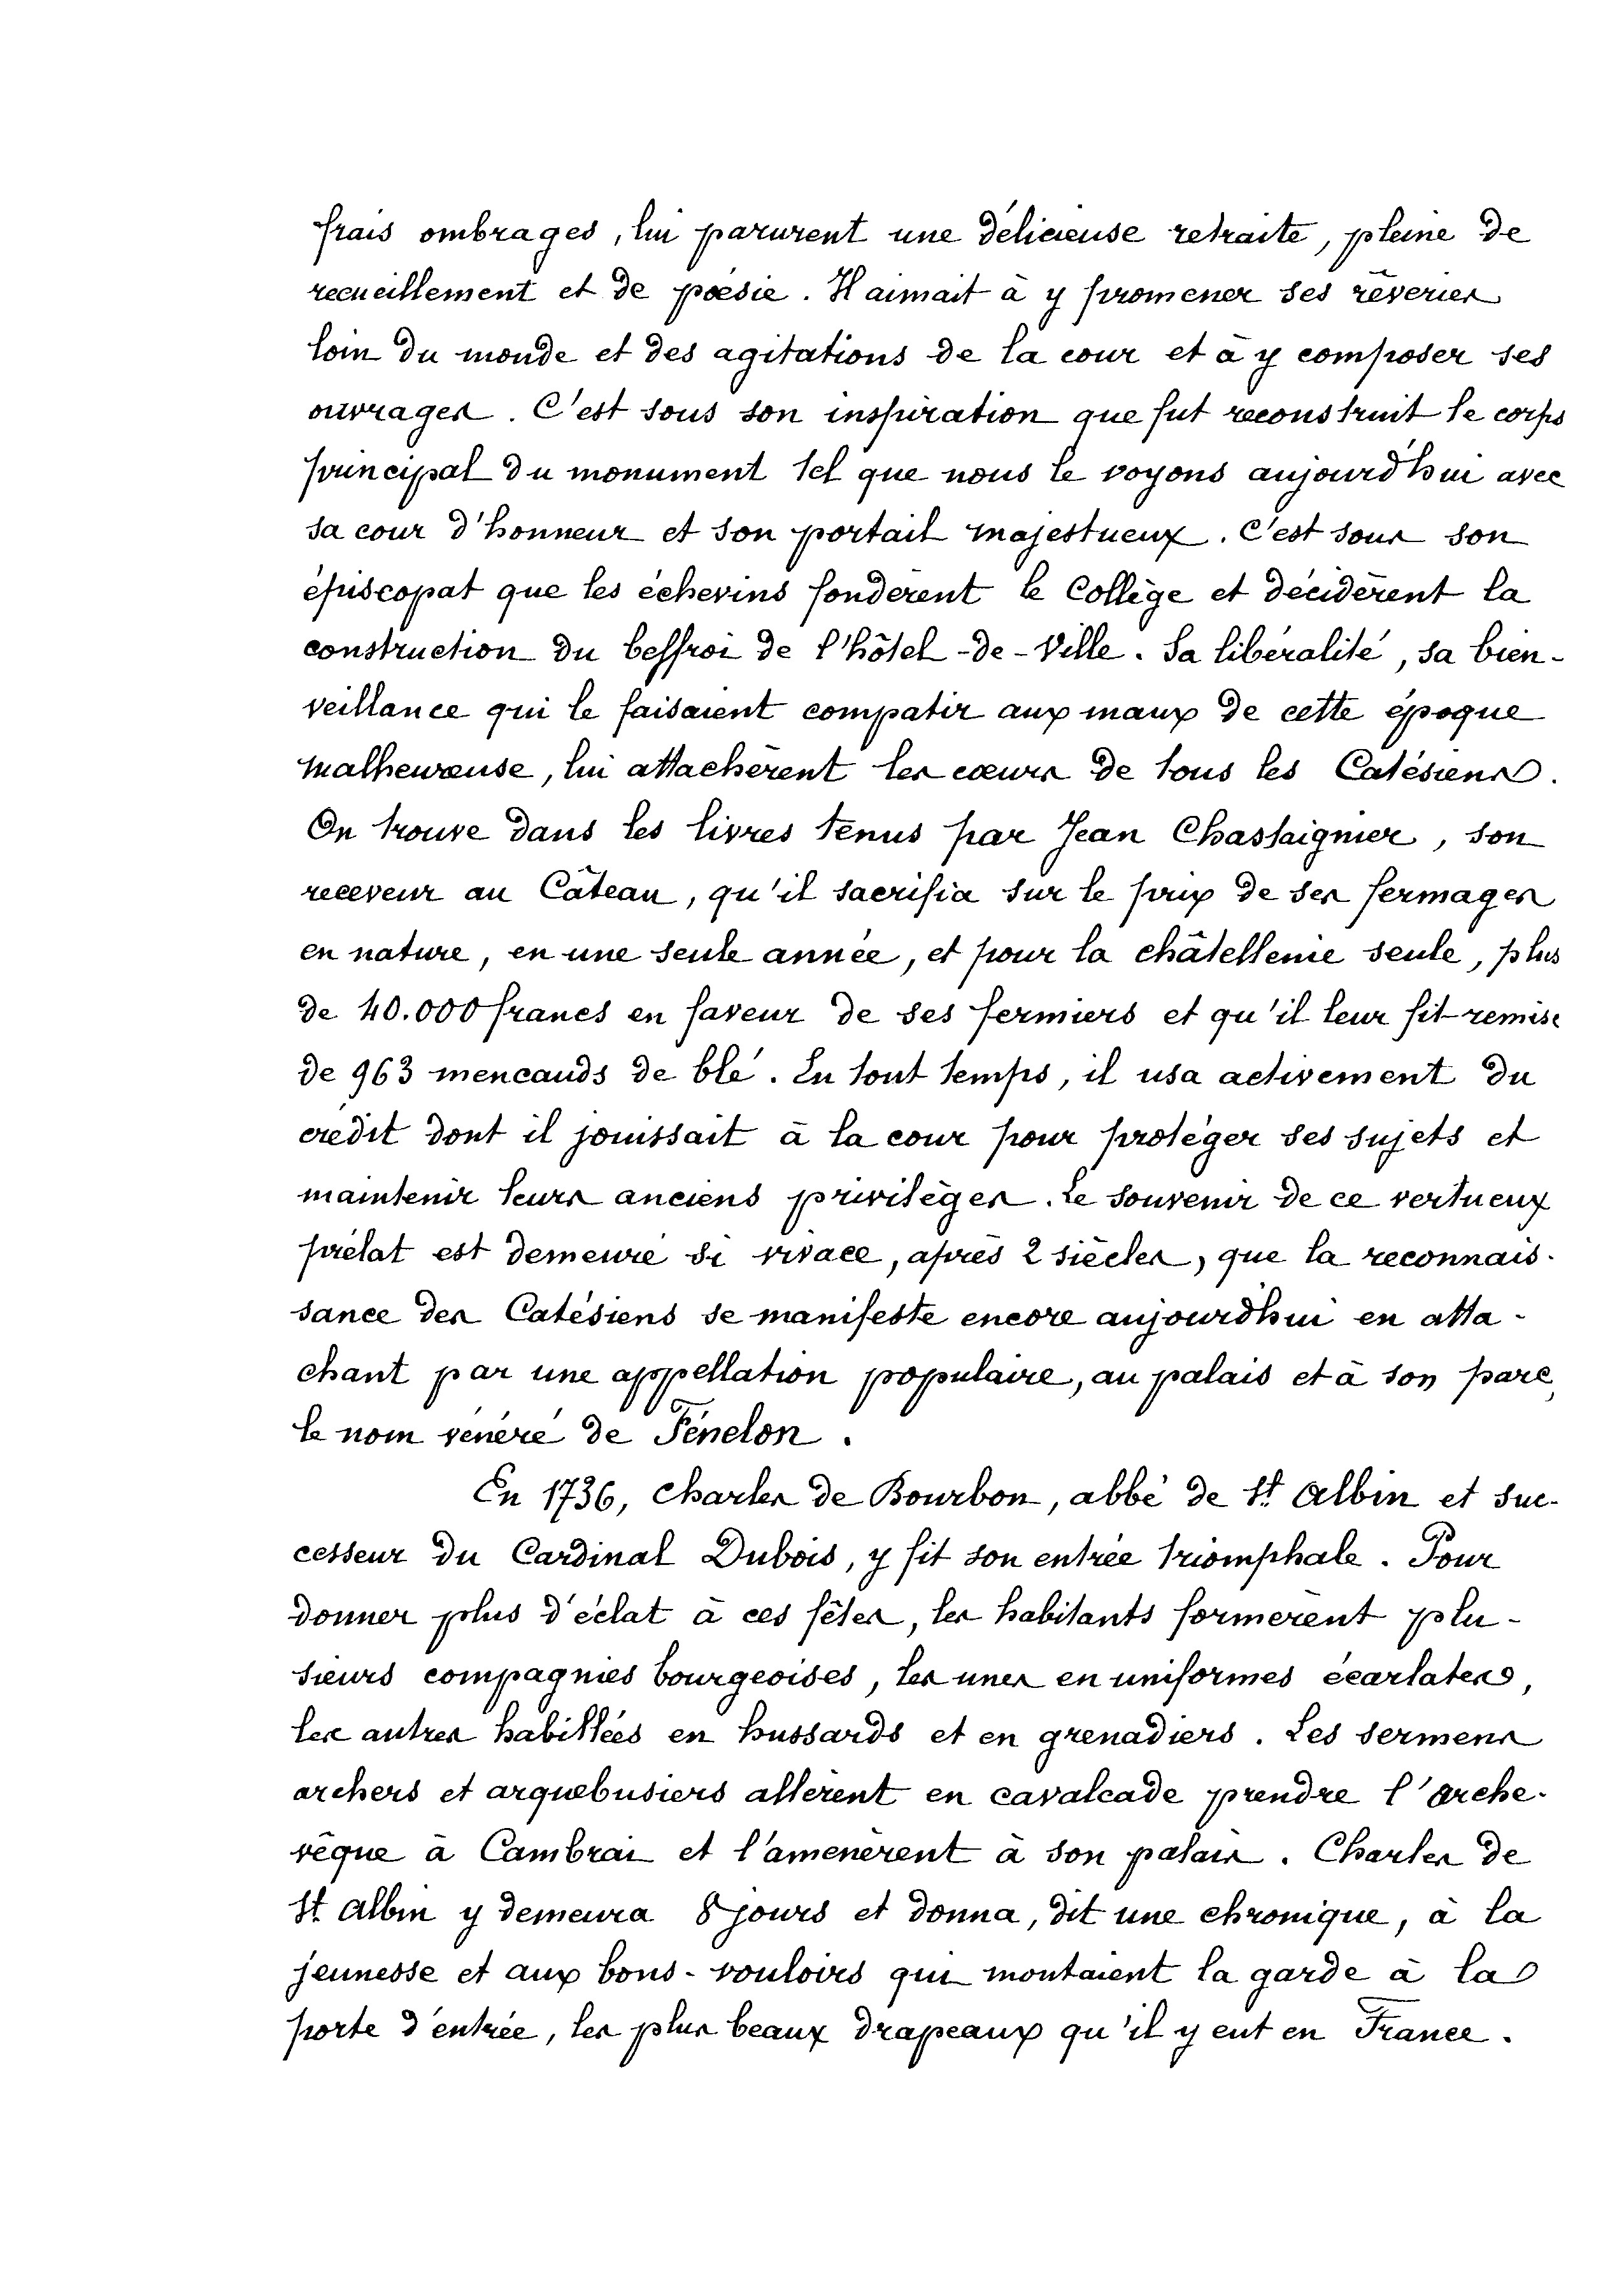 frais ombrages, lui parurent une délicieuse retraite, pleine de
recueillement et de poésie. Il aimait à y promener ses rêveries
loin du monde et des agitations de la cour et à y composer ses
ouvrages. C'est sous son inspiration que fut reconstruit le corps
principal du monument tel que nous le voyons aujourd'hui avec
sa cour d'honneur et son portail majestueux. C'est sous son
épiscopat que les échevins fondèrent le Collège et décidèrent la
construction du beffroi de l'hôtel-de-Ville. Sa libéralité, sa bien-
veillance qui le faisaient compatir aux maux de cette époque
malheureuse, lui attachèrent les cœurs de tous les Catésiens.
On trouve dans les livres tenus par Jean Chassaignier, son
receveur au Câteau, qu'il sacrifia sur le prix de ses fermages
en nature, en une seule année, et pour la châtellenie seule, plus
de 40.000 francs en faveur de ses fermiers et qu'il leur fit remise
de 963 mencauds de blé. En tout temps, il usa activement du
crédit dont il jouissait à la cour pour protéger ses sujets et
maintenir leurs anciens privilèges. Le souvenir de ce vertueux
prélat est demeuré si vivace, après 2 siècles, que la reconnais-
sance des Catésiens se manifeste encore aujourdhui en atta-
chant par une appellation populaire, au palais et à son parc,
le nom vénéré de Fénelon.
En 1736, Charles de Bourbon, abbé de St Albin et suc-
cesseur du Cardinal Dubois, y fit son entrée triomphale. Pour
donner plus d'éclat à ces fêtes, les habitants formèrent plu-
sieurs compagnies bourgeoises, les unes en uniformes écarlates,
les autres habillées en hussards et en grenadiers. Les sermens
archers et arquebusiers allèrent en cavalcade prendre l'Arche-
vêque à Cambrai et l'amenèrent à son palais. Charles de
St Albin y demeura 8 jours et donna, dit une chronique, à la
jeunesse et aux bons-vouloirs qui montaient la garde à la
porte d'entrée, les plus beaux drapeaux qu'il y eut en France.